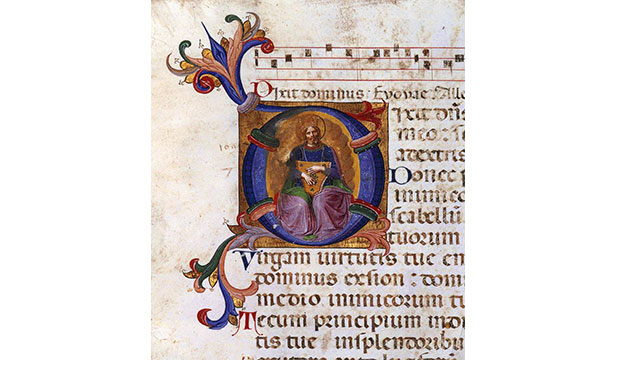 Dixit dominus : Euouae
Dixit dn̄s
meo : s
adextris
Donec p
inimic
scabellū
tuorum
Virgam uirtutis tue em
dominus exsion : domi
medio inimicorum tu
Tecum principium in
tis tue insplendoribu